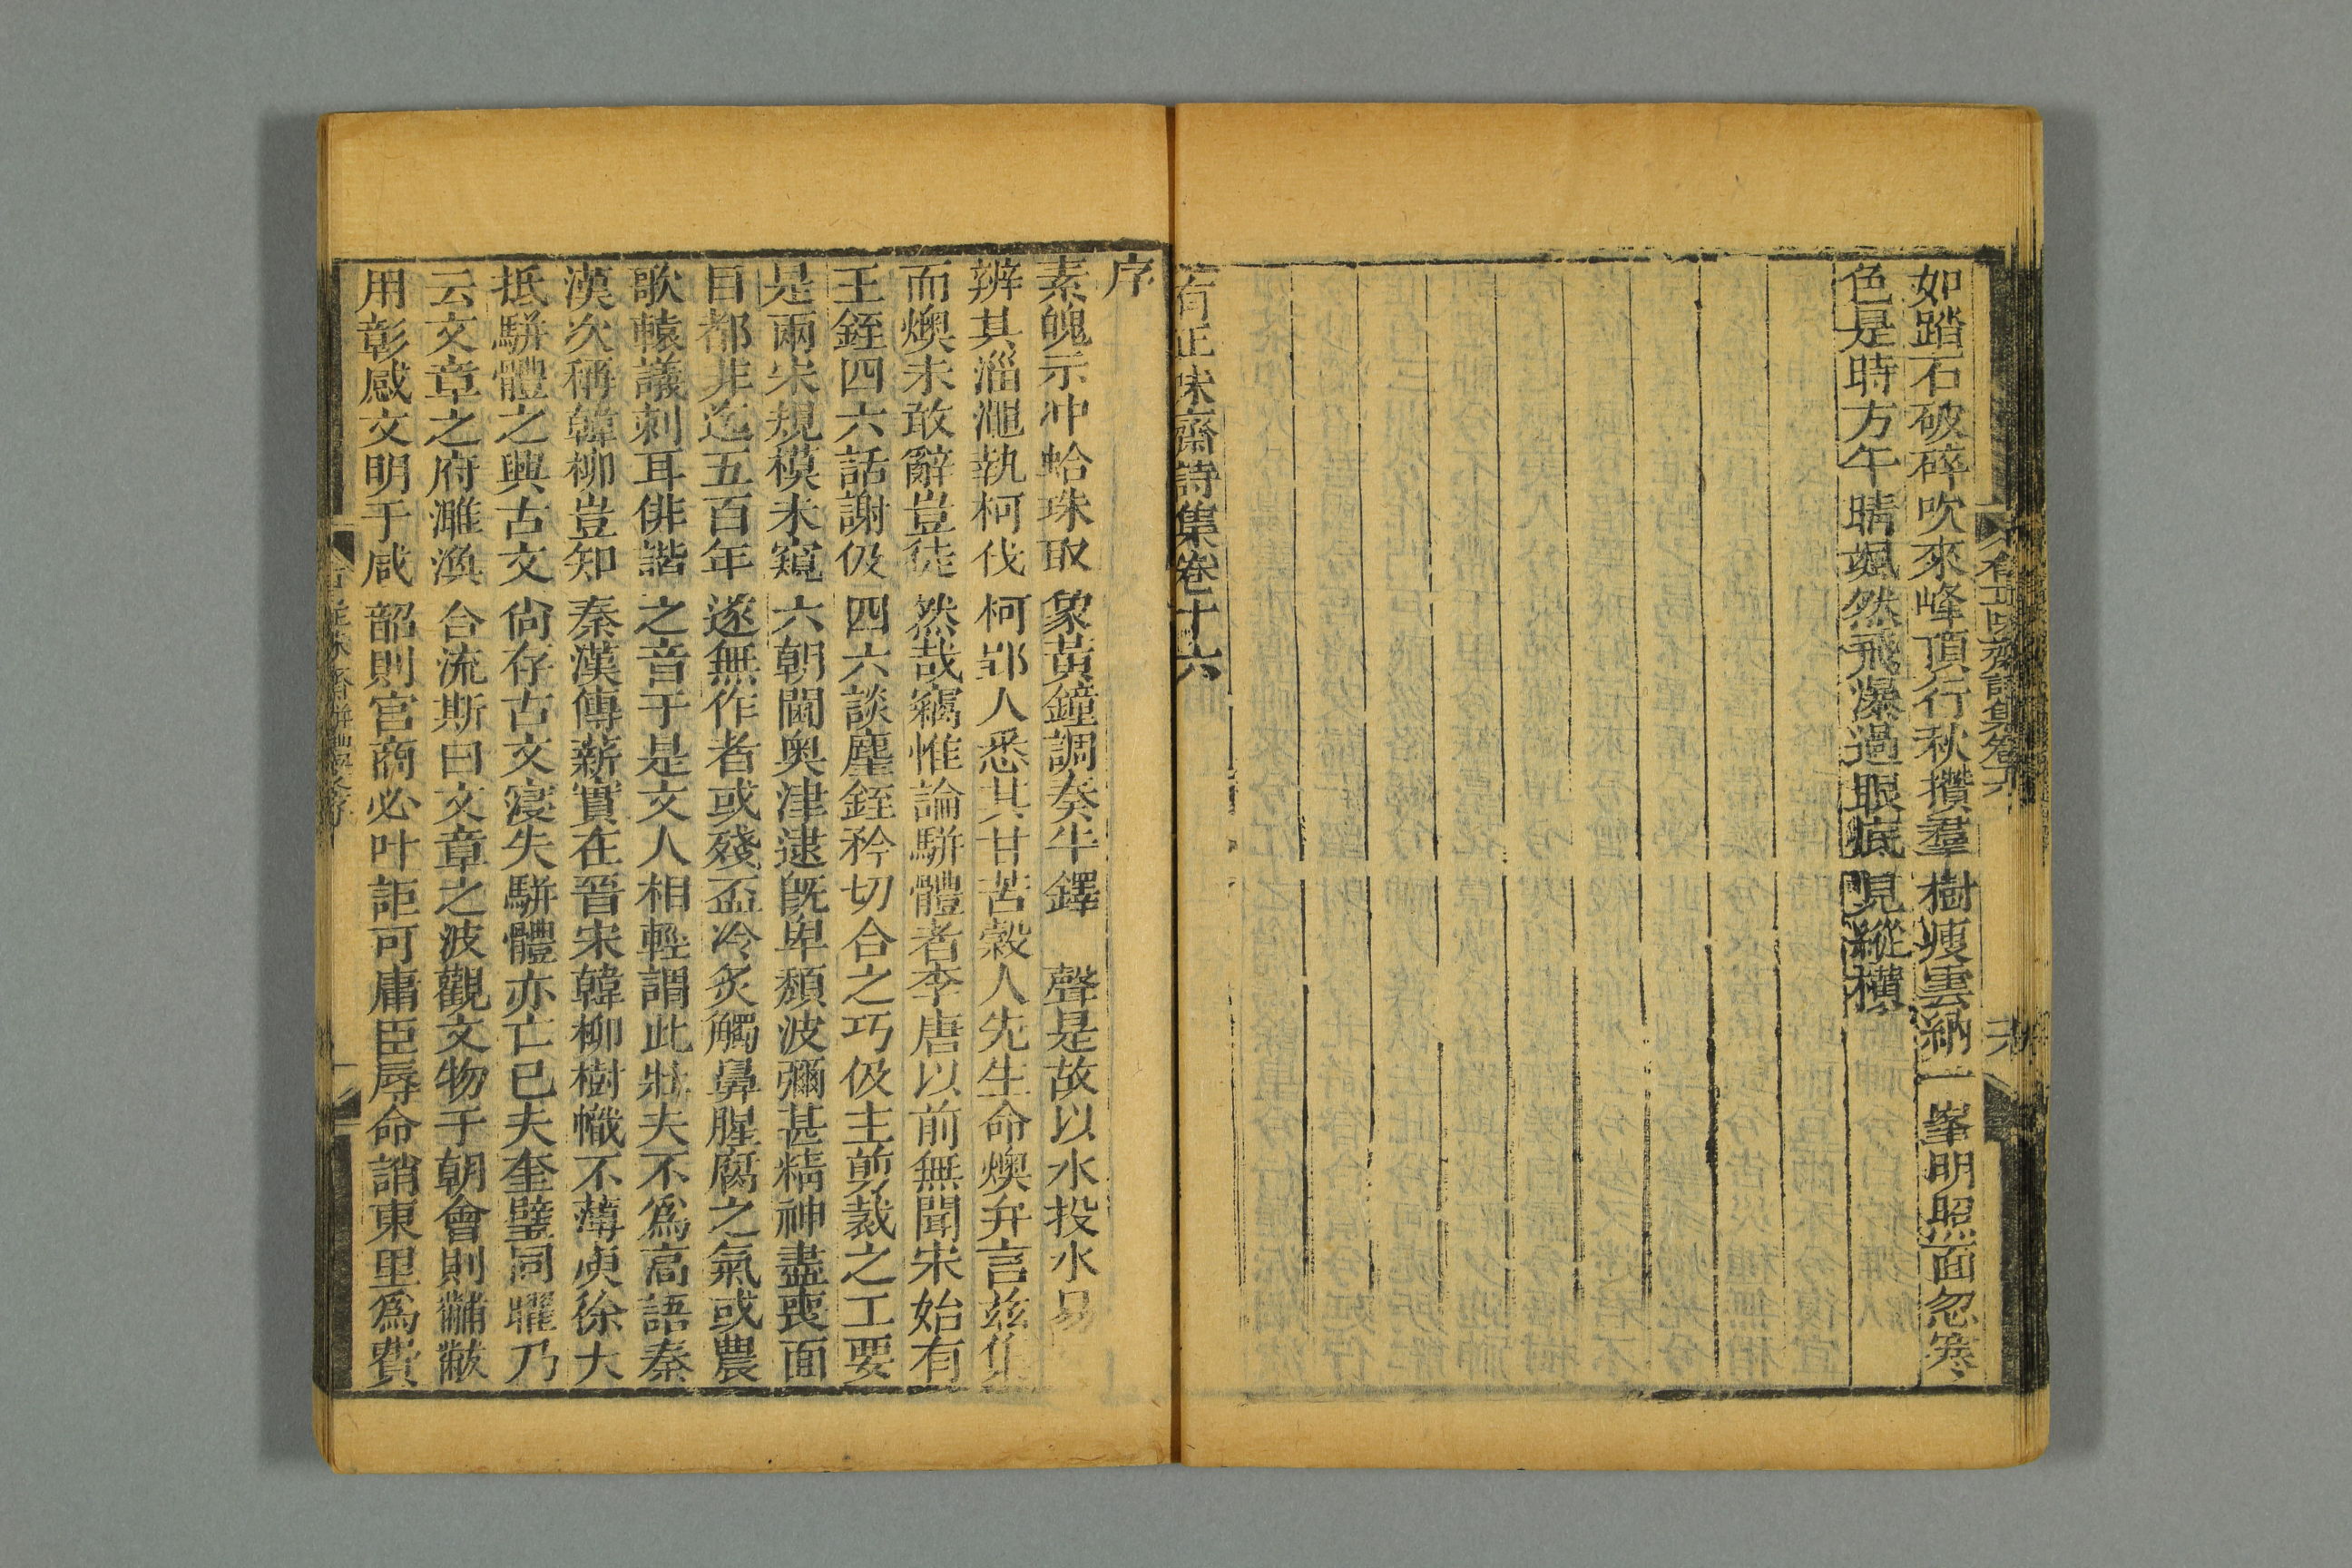 如踏石破碎吹來峰頂行秋攢羣樹瘦雲納一峯明照面忽寒
色是時方午晴颯然飛瀑過眼底見縱橫
有正味齋詩集卷十六
序
素魄示冲蛤珠取象黃鐘調奏牛鐸聲是故以水投水易
辨其淄澠執柯伐柯郢人悉其甘苦穀人先生命燠弁言兹集
而燠未敢辭豈徒然哉竊惟論駢體者李唐以前無聞宋始有
王銍四六話謝伋四六談麈銍矜切合之巧伋主剪裁之工要
是兩宋規模未窺六朝閫奥津逮既卑頹波彌甚精神盡喪面
目都非迄五百年遂無作者或殘盃冷炙觸鼻腥腐之氣或農
歌轅議刺耳俳諧之音于是文人相輕謂此壯夫不爲高語秦
漢次稱韓柳豈知秦漢傳薪實在晉宋韓柳樹幟不薄庾徐大
抵駢體之興古文尙存古文寖失駢體亦亡已夫奎璧同曜乃
云文章之府濉渙合流斯曰文章之波觀文物于朝會則黼黻
用彰感文明于咸韶則宫商必叶詎可庸臣辱命誚東里爲費